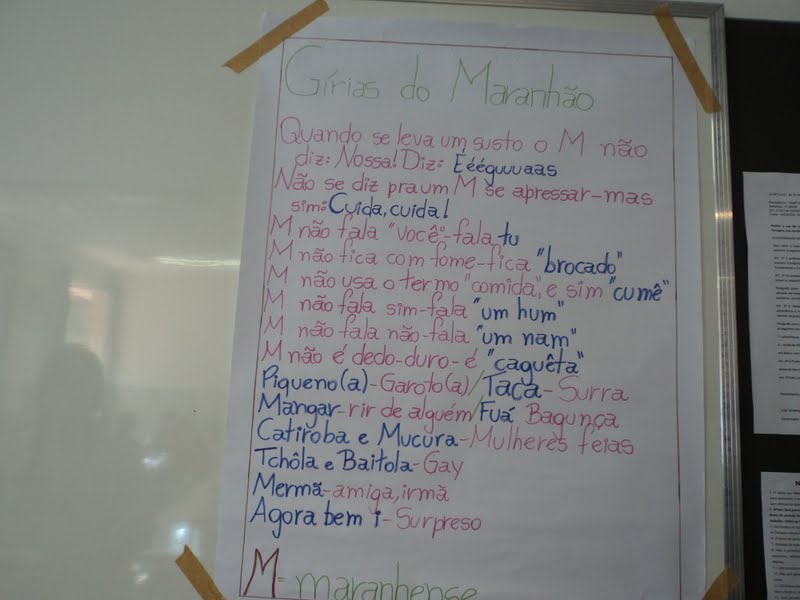 Gírias do Maranhão
Quando se leva um susto o M não
diz: Nossa! Diz: Éééguuuaas
Não se diz pra um M se apressar-mas
sim: Cuida, cuida!
M não fala "você"-fala tu
M não fica com fome-fica "brocado"
M não usa o termo "comida", e sim "cumê"
M não fala sim-fala "um hum"
M não fala não-fala "um nam"
M não é dedo-duro-é "caguêta"
Piqueno(a)-Garoto(a)/Taca-Surra
Mangar-rir de alguém/Fuá Bagunça
Catiroba e Mucura-Mulheres feias
Tchôla e Baitola-Gay
Mermã-amiga, irmã
Agora bem i-Surpreso
M=maranhense